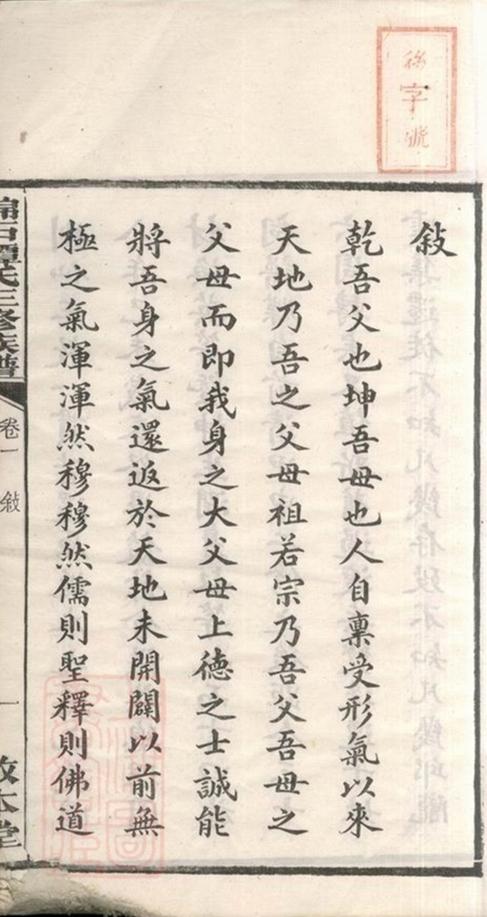 敍
乾吾父也坤吾母也人自稟受形氣以來
天地乃吾之父母祖若宗乃吾父吾母之
父母而即我身之大父母上德之士誠能
將吾身之氣還返於天地未開闢以前無
極之氣渾渾然穆穆然儒則聖釋則佛道
氏三修族譜
卷一 敍
一
敦本堂
字號